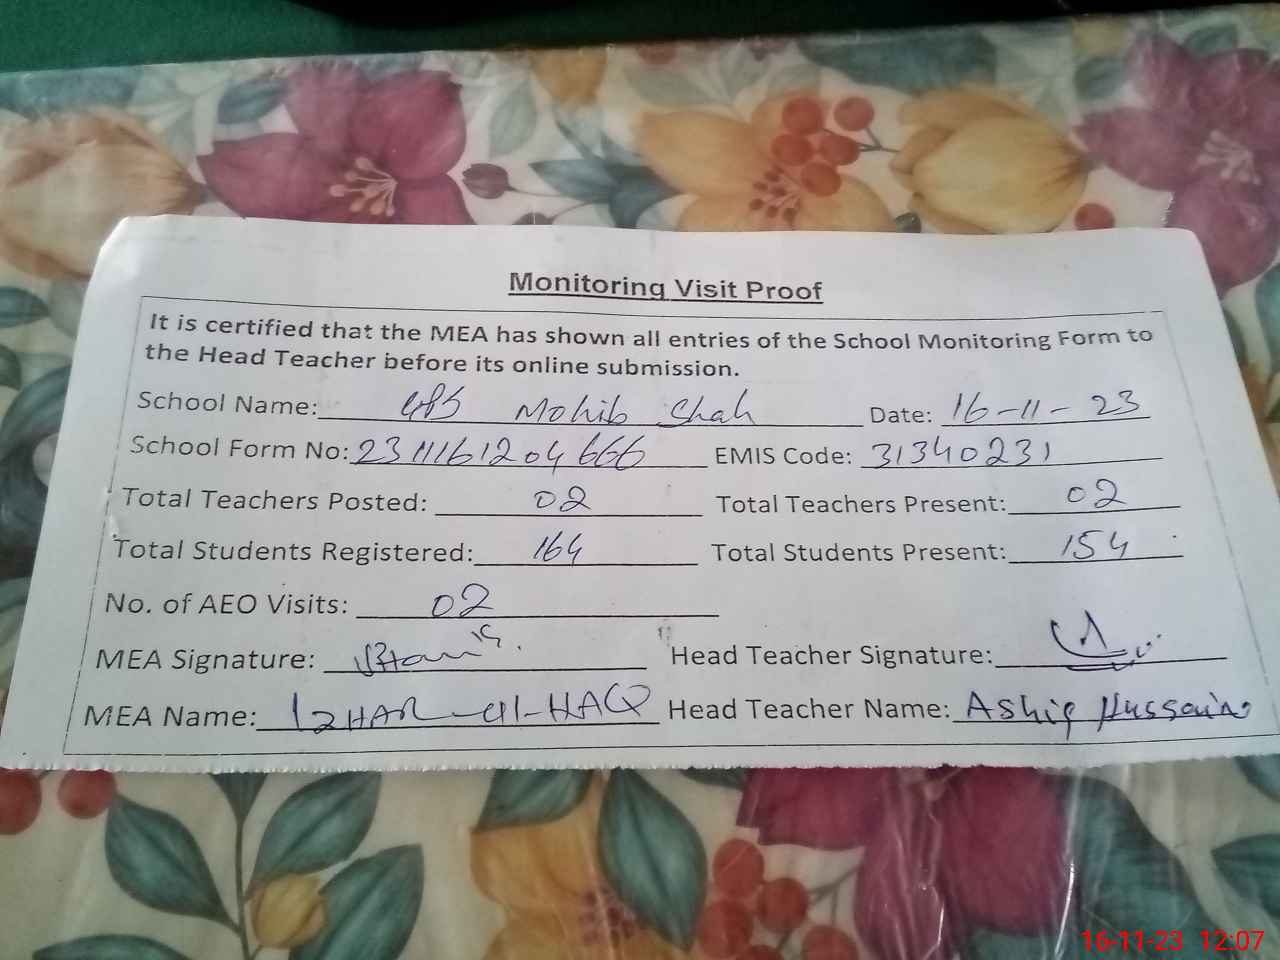 Monitoring Visit Proof
It is certified that the MEA has shown all entries of the School Monitoring Form to
the Head Teacher before its online submission.
School Name: GPS Mohib Shah Date: 16-11-23
School Form No: 2311161204666 EMIS Code: 31340231
Total Teachers Posted: 02 Total Teachers Present: 02
Total Students Registered: 164 Total Students Present: 154
No. of AEO Visits: 02
MEA Signature: Head Teacher Signature:
MEA Name: IZHAR-ul-HAQ Head Teacher Name: Ashiq Hussain
16-11-23 12:07